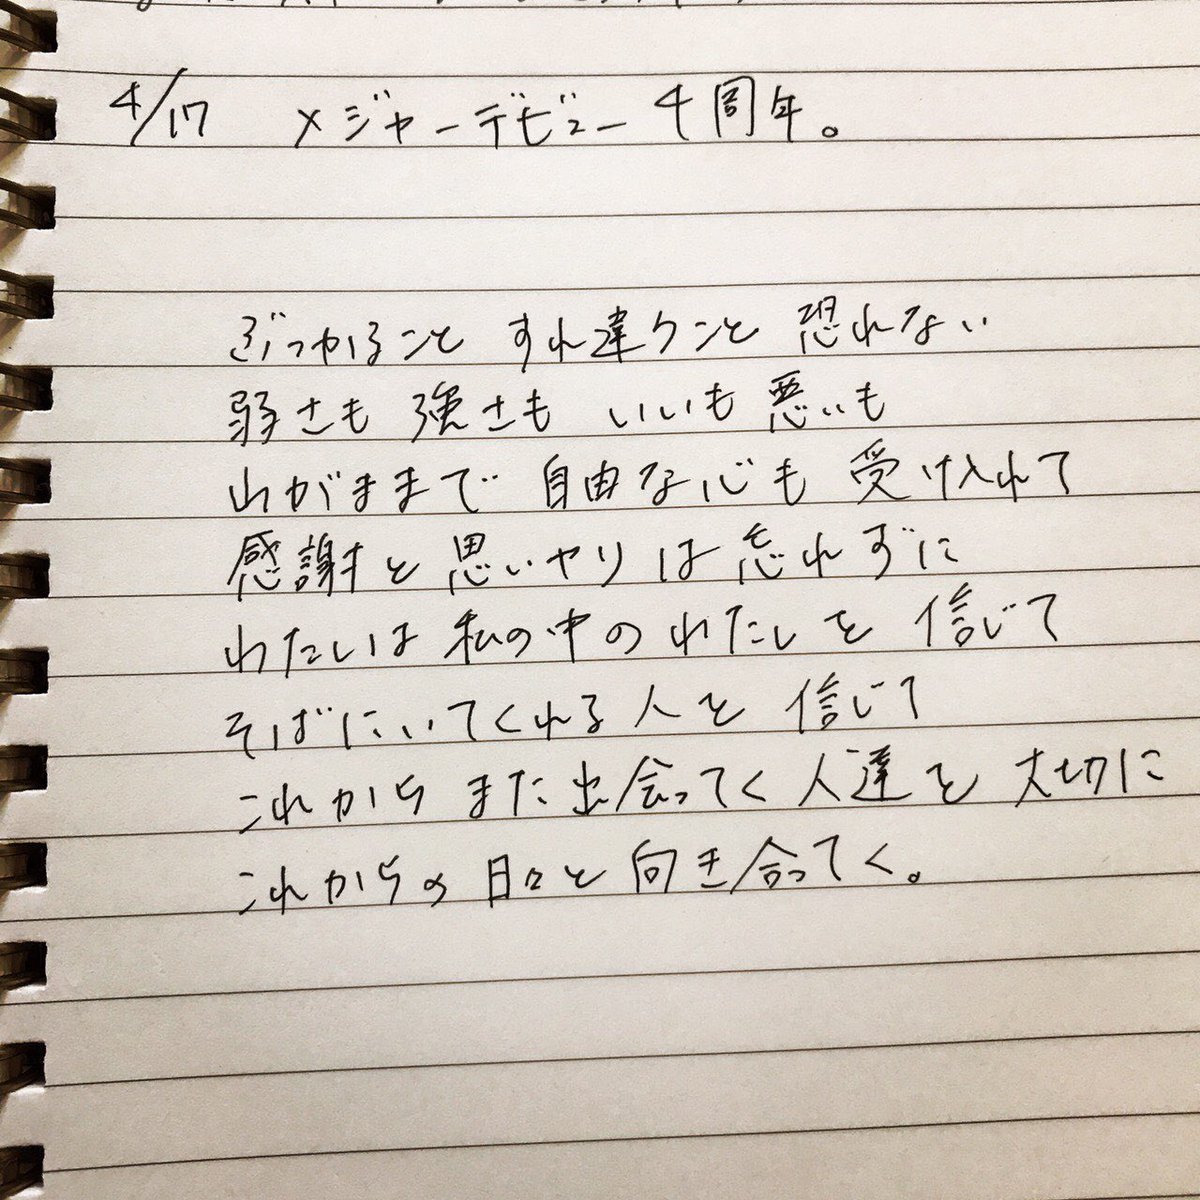 4/17 メジャーデビュー4周年。
ぶつかること すれ違うこと 恐れない
弱さも 強さも いいも 悪いも
わがままで 自由な心も 受け入れて
感謝と 思いやりは 忘れずに
わたしは 私の中の わたしを 信じて
そばにいてくれる人を 信じて
これから また 出会ってく 人達を 大切に
これからの 日々と 向き合ってく。